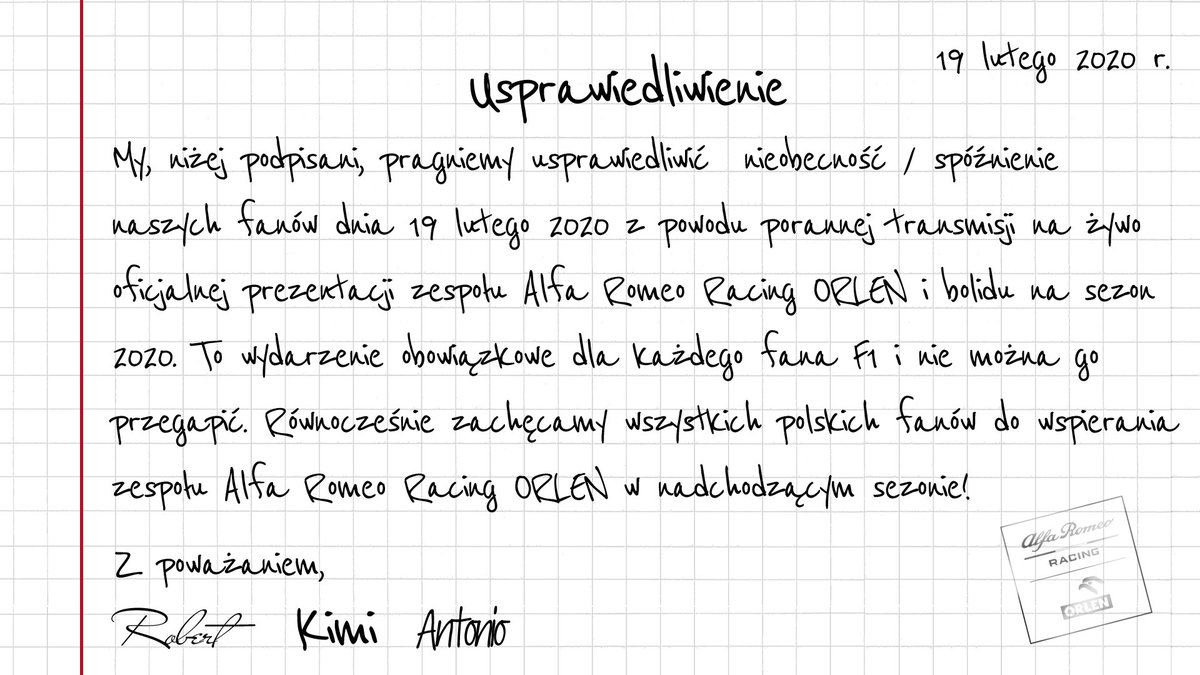 19 lutego 2020 r.
Usprawiedliwienie
My, niżej podpisani, pragniemy usprawiedliwić nieobecność / spóźnienie
naszych fanów dnia 19 lutego 2020 z powodu porannej transmisji na żywo
oficjalnej prezentacji zespołu Alfa Romeo Racing ORLEN i bolidu na sezon
2020. To wydarzenie obowiązkowe dla każdego fana F1 i nie można go
przegapić. Równocześnie zachęcamy wszystkich polskich fanów do wspierania
zespołu Alfa Romeo Racing ORLEN w nadchodzącym sezonie!
Z poważaniem,
Robert Kimi Antonio
Alfa Romeo
RACING
ORLEN